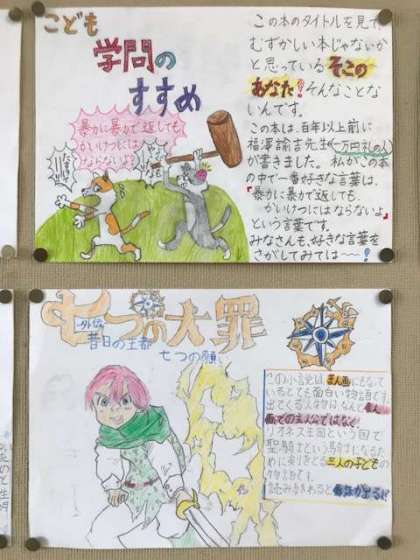 こども
学問の
すすめ
暴力に暴力で返しても
かいけつには
ならないよ
この本のタイトルを見て、
むずかしい本じゃないか
と思っているそこの
あなた!そんなことな
いんです。
この本は、百年以上前に
福澤諭吉先生(一万円札の人)
が書きました。私がこの本
の中で一番好きな言葉は、
「暴力に暴力で返しても
かいけつにはならないよ」
という言葉です。
みなさんも、好きな言葉を
さがしてみては〜!
七つの大罪
外伝
昔日の王都
七つの願い
この小説はまん画にもなって
いるとても面白い物語です。
出てくる人物はなんとまん
画での主人公ではなく
リオネス王国という国で
聖騎士という騎士になるため
に
三人の子どもの
物語です。